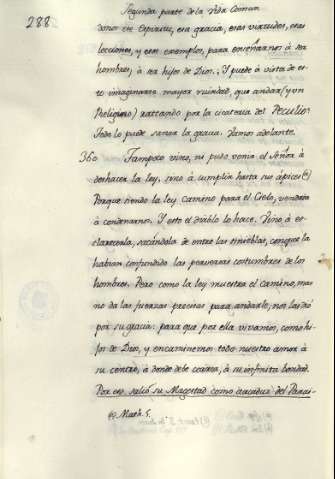 288.
Segunda parte de la Vida Comun
donos ese Espiritu, esa gracia, esas virtudes, esas
lecciones, y esos exemplos, para enseñarnos à ser
hombres, à ser hijos de Dios. Y puede à vista de es-
to imaginarse mayor ruindad, que andar (y un
Religioso) rateando por la cicateria del Peculio
Solo lo puede sanar la gracia. Vamos adelante.
360 Tampoco vino, ni pudo venir el Señor à
deshacer la ley, sino à cumplirla hasta sus ápices
Porque siendo la ley camino para el Cielo, vendria
à condenarnos. Y esto el diablo lo hace. Vino à es-
clarecerla, sacandola de entre las tinieblas, con que la
habian confundido las perversas costumbres de los
hombres. Pero como la ley muestra el camino, mas
no da las fuerzas precisas para andarle, nos las dió
por su gracia: para que por ella vivamos, como hi-
jos de Dios, y encaminemos todo nuestro amor à
su centro, à donde debe correr, à su infinita bondad.
Por eso salió su Magestad como del Parai-
Math. 5.